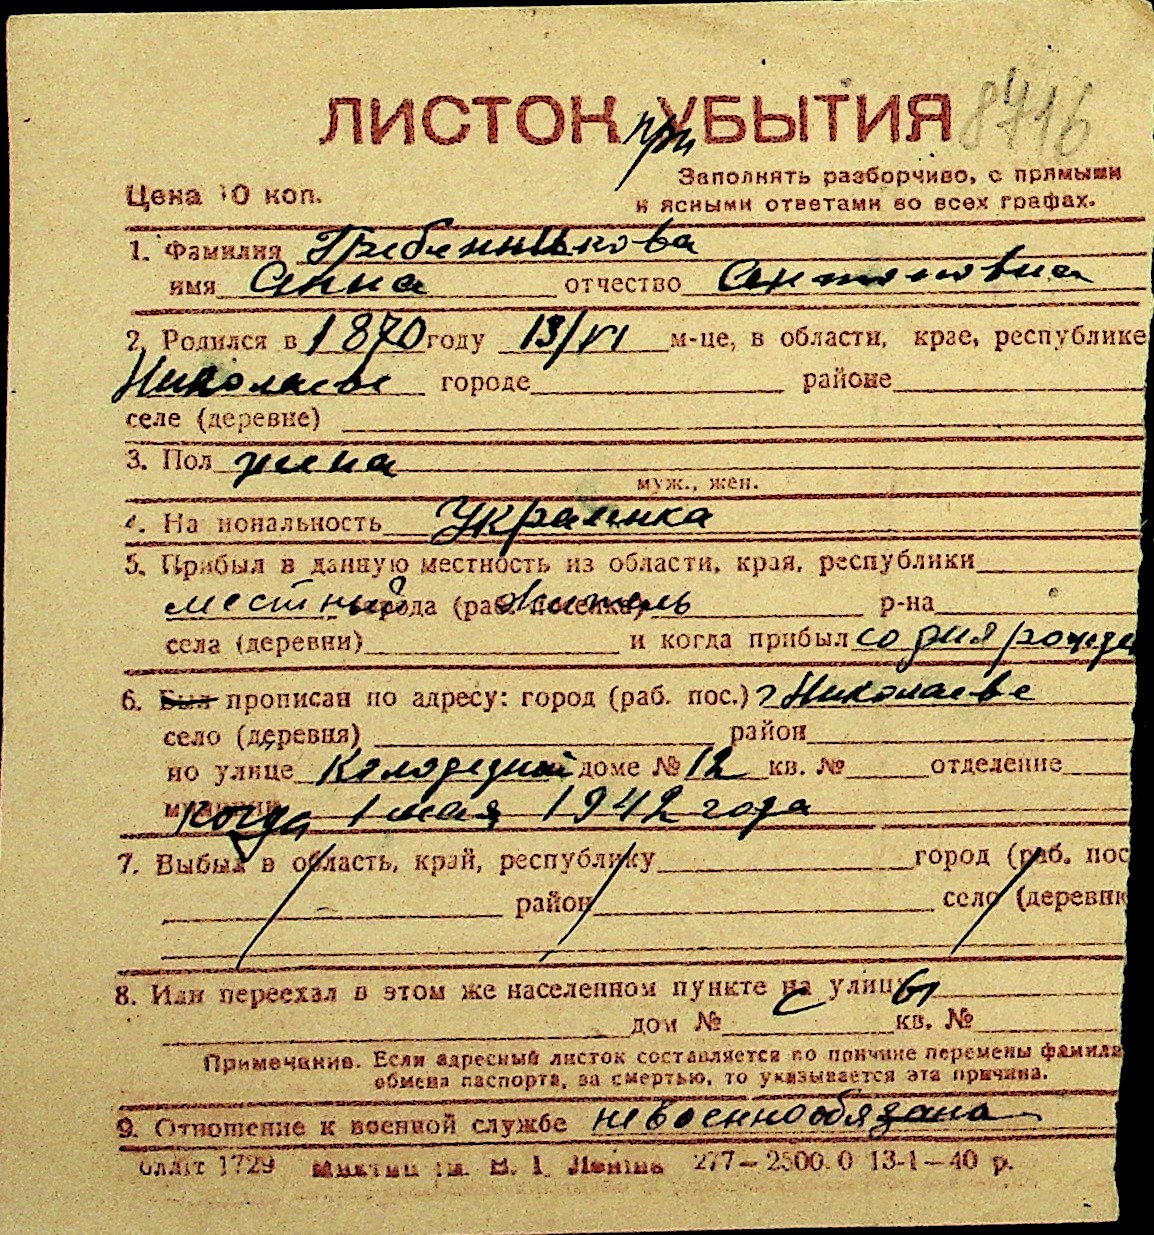 ЛИСТОК УБЫТИЯ
при
8716
Цена 10 коп.
Заполнять разборчиво, с прямыми
и ясными ответами во всех графах.
1. Фамилия Гребенникова
имя Анна отчество Антоновна
2. Родился в 1870 году 13/VI м-це, в области, крае, республике
Николаеве городе районе
селе (деревне)
3. Пол жена
муж., жен.
4. Национальность Украинка
5. Прибыл в данную местность из области, края, республики
местный города (раб. поселка) житель р-на
села (деревни) и когда прибыл со дня рожде
6. Был прописан по адресу: город (раб. пос.) г Николаеве
село (деревня) район
по улице Колодезной доме № 12 кв. № отделение
когда 1 мая 1942 года
7. Выбыл в область, край, республику город (раб. пос
район село (деревня
8. Или переехал в этом же населенном пункте с улицы
дом № кв. №
Примечание. Если адресный листок составляется по причине перемены фамили
обмена паспорта, за смертью, то указывается эта причина.
9. Отношение к военной службе невоеннообязана
1729 277—2500.0 13-1—40 р.